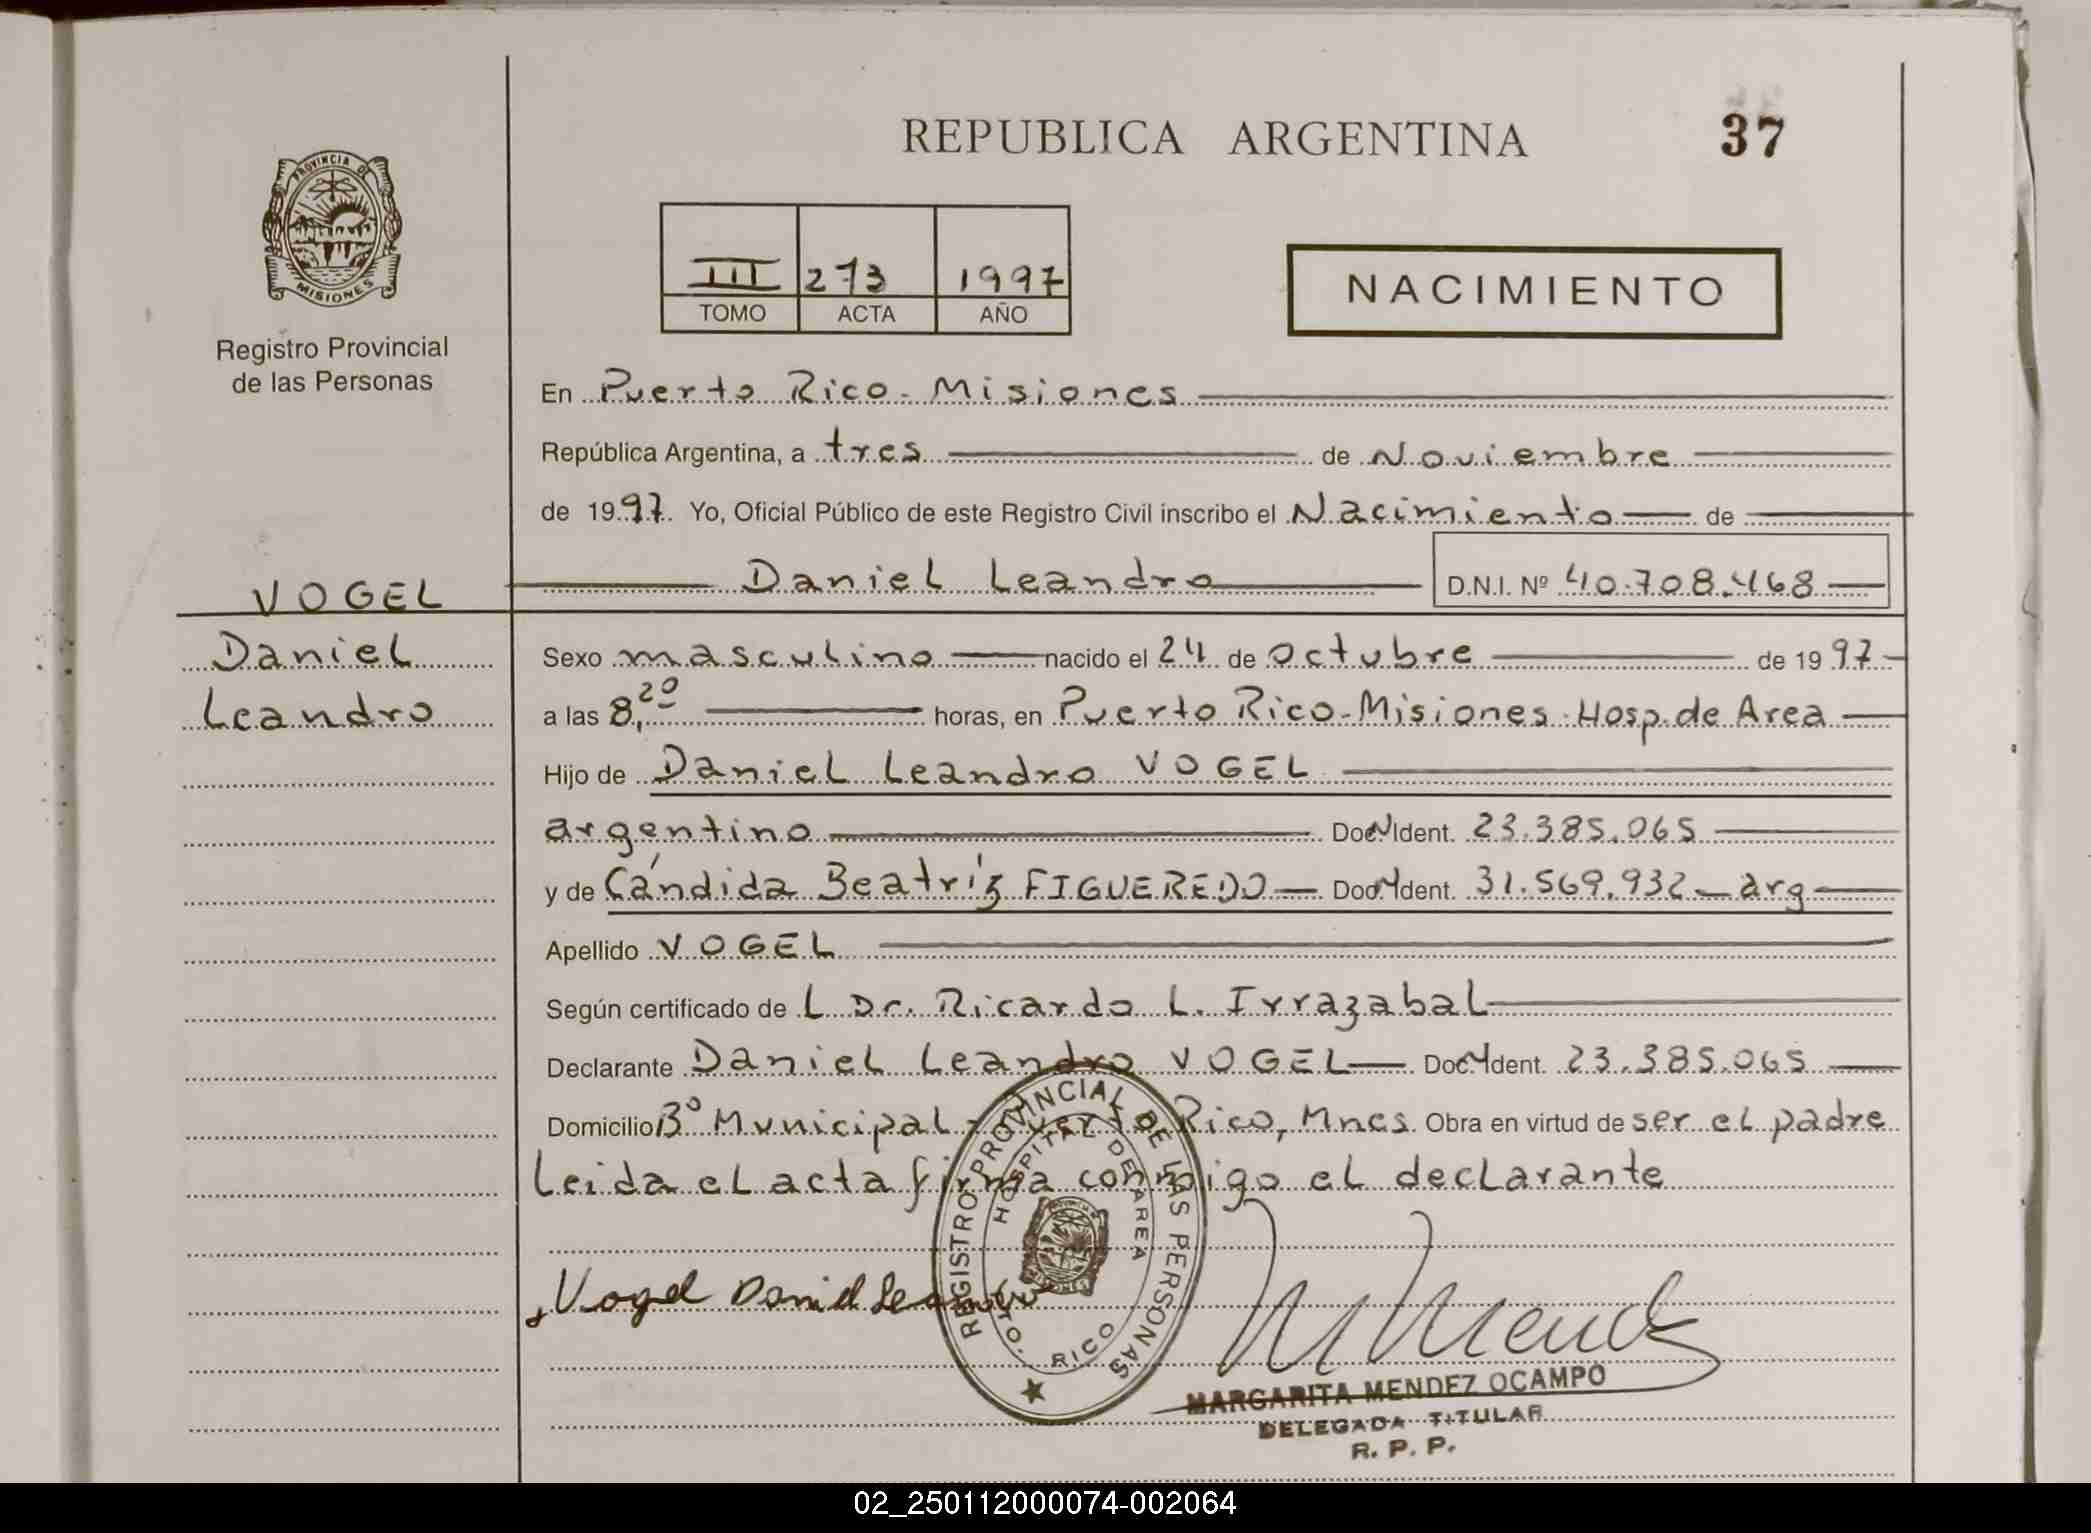 REPUBLICA ARGENTINA
37
PROVINCIA DE
MISIONES
Registro Provincial
de las Personas
III 273 1997
TOMO ACTA AÑO
NACIMIENTO
En Puerto Rico - Misiones
República Argentina, a tres de Noviembre
de 1997. Yo, Oficial Público de este Registro Civil inscribo el Nacimiento de
Daniel Leandro D.N.I. Nº 40.708.468
VOGEL
Daniel
Leandro
Sexo masculino nacido el 24 de octubre de 1997
a las 8,20 horas, en Puerto Rico - Misiones - Hosp. de Area
Hijo de Daniel Leandro VOGEL
argentino Doc N Ident. 23.385.065
y de Cándida Beatríz FIGUEREDO Doc N Ident. 31.569.932 - arg
Apellido VOGEL
Según certificado de L Dr. Ricardo L. Irrazabal
Declarante Daniel Leandro VOGEL Doc N Ident. 23.385.065
Domicilio Bº Municipal - Puerto Rico, Mnes. Obra en virtud de ser el padre
Leida el acta firma conmigo el declarante
REGISTRO PROVINCIAL DE LAS PERSONAS
HOSPITAL DE AREA
PTO. RICO
MISIONES
Vogel Daniel Leandro
M Mendez
MARGARITA MENDEZ OCAMPO
DELEGADA TITULAR
R. P. P.
02_250112000074-002064